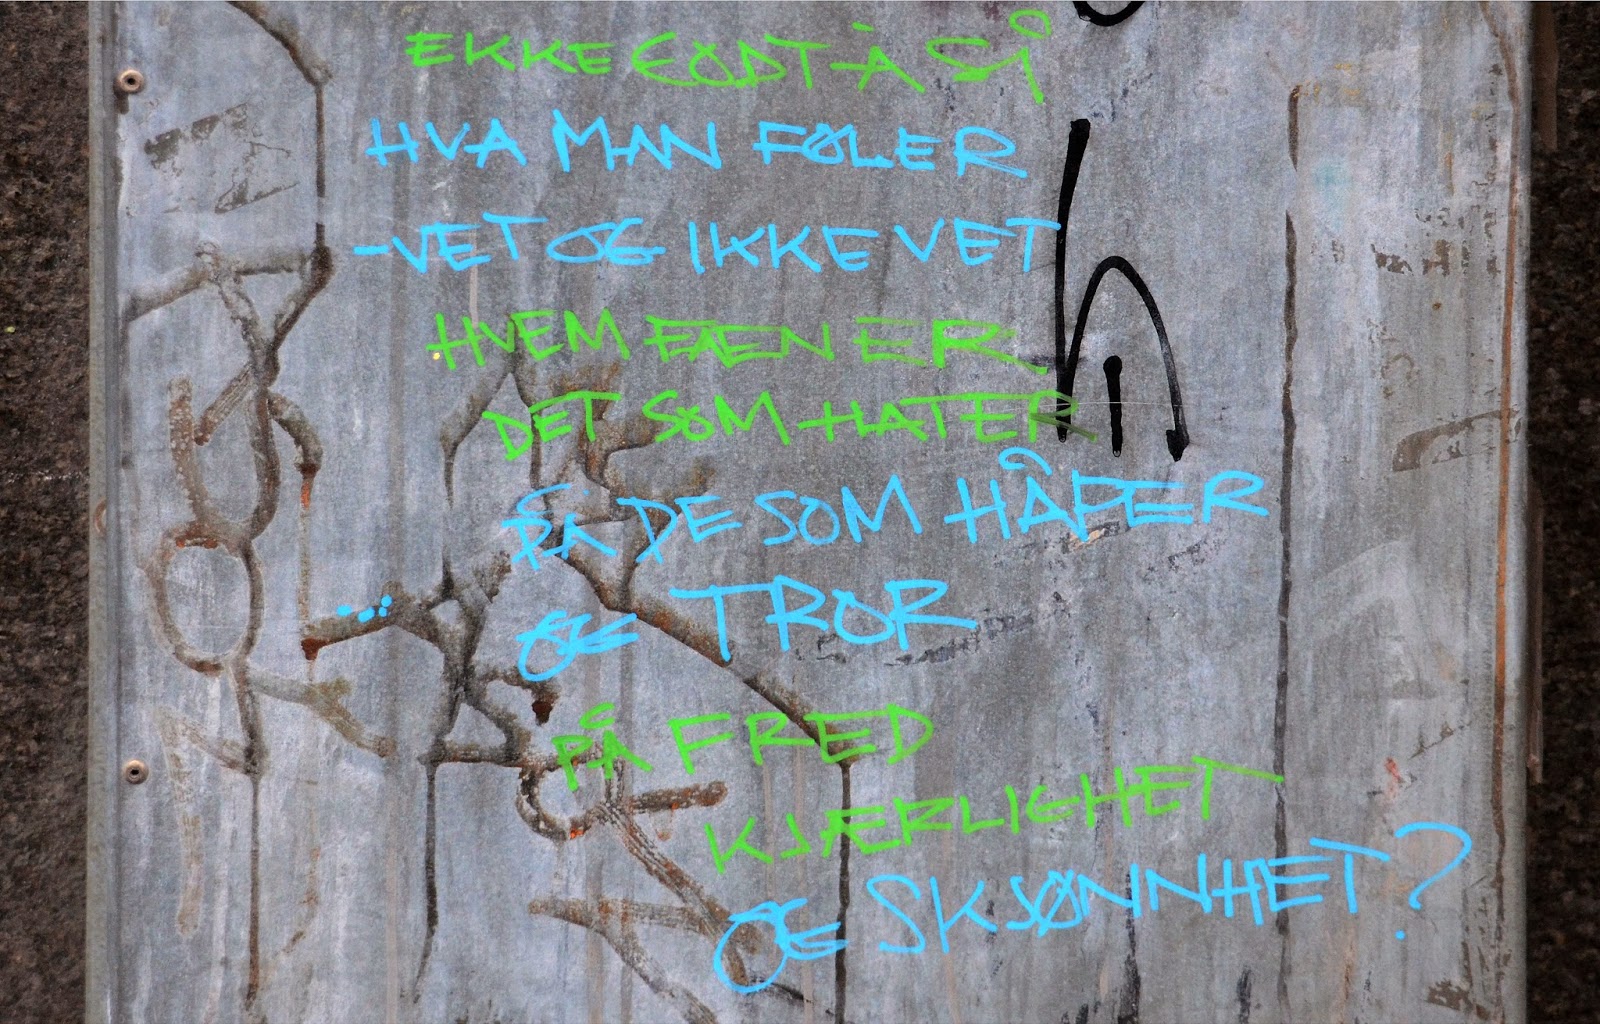 EKKE GODT Å SI
HVA MAN FØLER
-VET OG IKKE VET
HVEM FAEN ER
DET SOM HATER
PÅ DE SOM HÅPER
OG TROR
PÅ FRED
KJÆRLIGHET
OG SKJØNNHET?